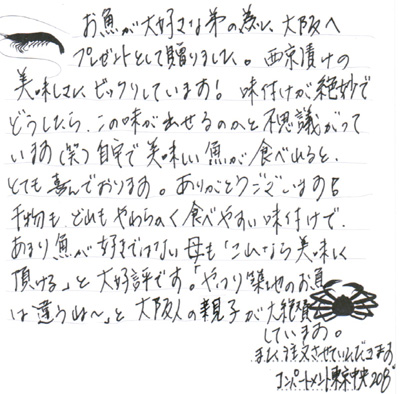 お魚が大好きな弟の為に、大阪へ
プレゼントとして贈りました。西京漬けの
美味しさに、ビックリしています！味付けが絶妙で
どうしたら、この味が出せるのかと不思議がって
います（笑）自宅で美味しい魚が食べれると、
とても喜んでおります。ありがとうございます！
干物も、どれもやわらかく食べやすい味付けで、
あまり魚が好きではない母も「これなら美味しく
頂ける」と大好評です。「やっぱり築地のお魚
は違うね〜」と大阪人の親子が大絶賛
しています。
また、注文させていただきます